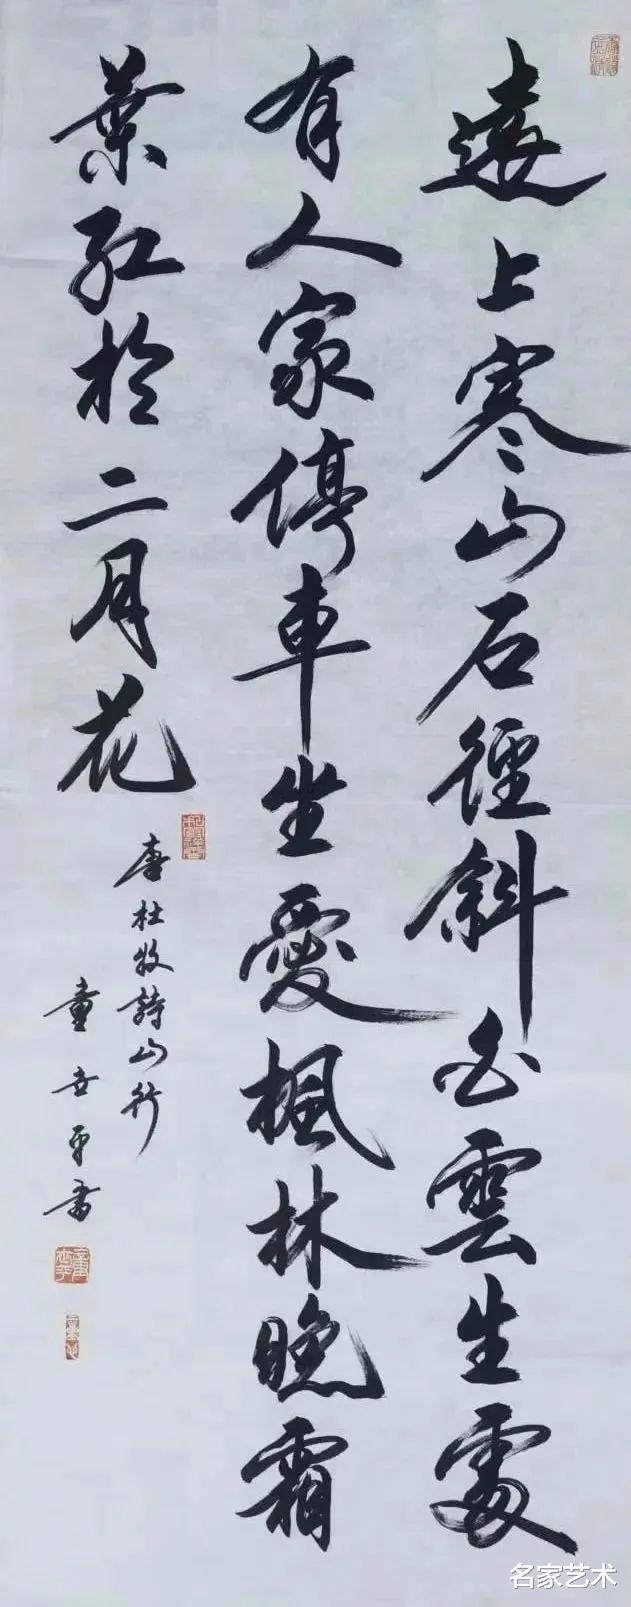 遠上寒山石徑斜白雲生處
有人家停車坐愛楓林晚霜
葉紅於二月花
唐杜牧詩山行
童世平書
名家艺术